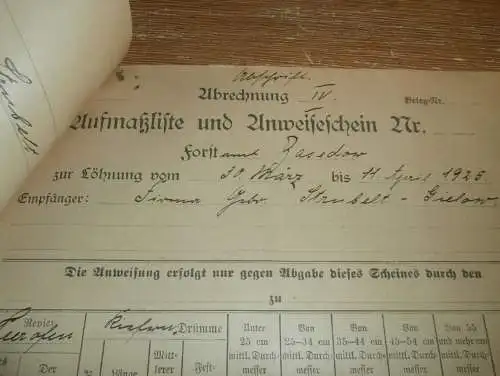 Strubelt
Abschrift.
Abrechnung IV.
Beleg-Nr.
Aufmaßliste und Anweiseschein Nr.
Forstamt Basedow
zur Löhnung vom 30. März bis 11 April 1925
Empfänger: Firma Gebr. Strubelt - Gielow
Die Anweisung erfolgt nur gegen Abgabe dieses Scheines durch den
zu
Revier
Kiefern Drümme
Unter 25 cm mittl. Durchmesser
Von 25-34 cm mittl. Durchmesser
Von 35-44 cm mittl. Durchmesser
Von 45-54 cm mittl. Durchmesser
Von 55 und mehr cm mittl. Durchmesser
Der
Länge
Mittlerer
Fest-